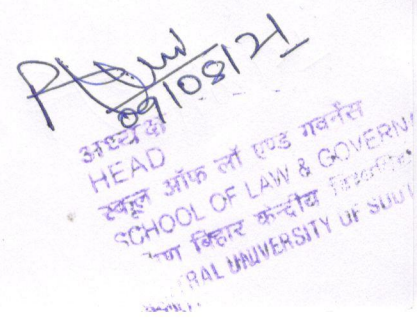 09/08/21
अध्यक्ष
HEAD
स्कूल ऑफ लॉ एण्ड गवर्नेंस
SCHOOL OF LAW & GOVERN
बिहार केन्द्रीय
RAL UNIVERSITY OF SOU